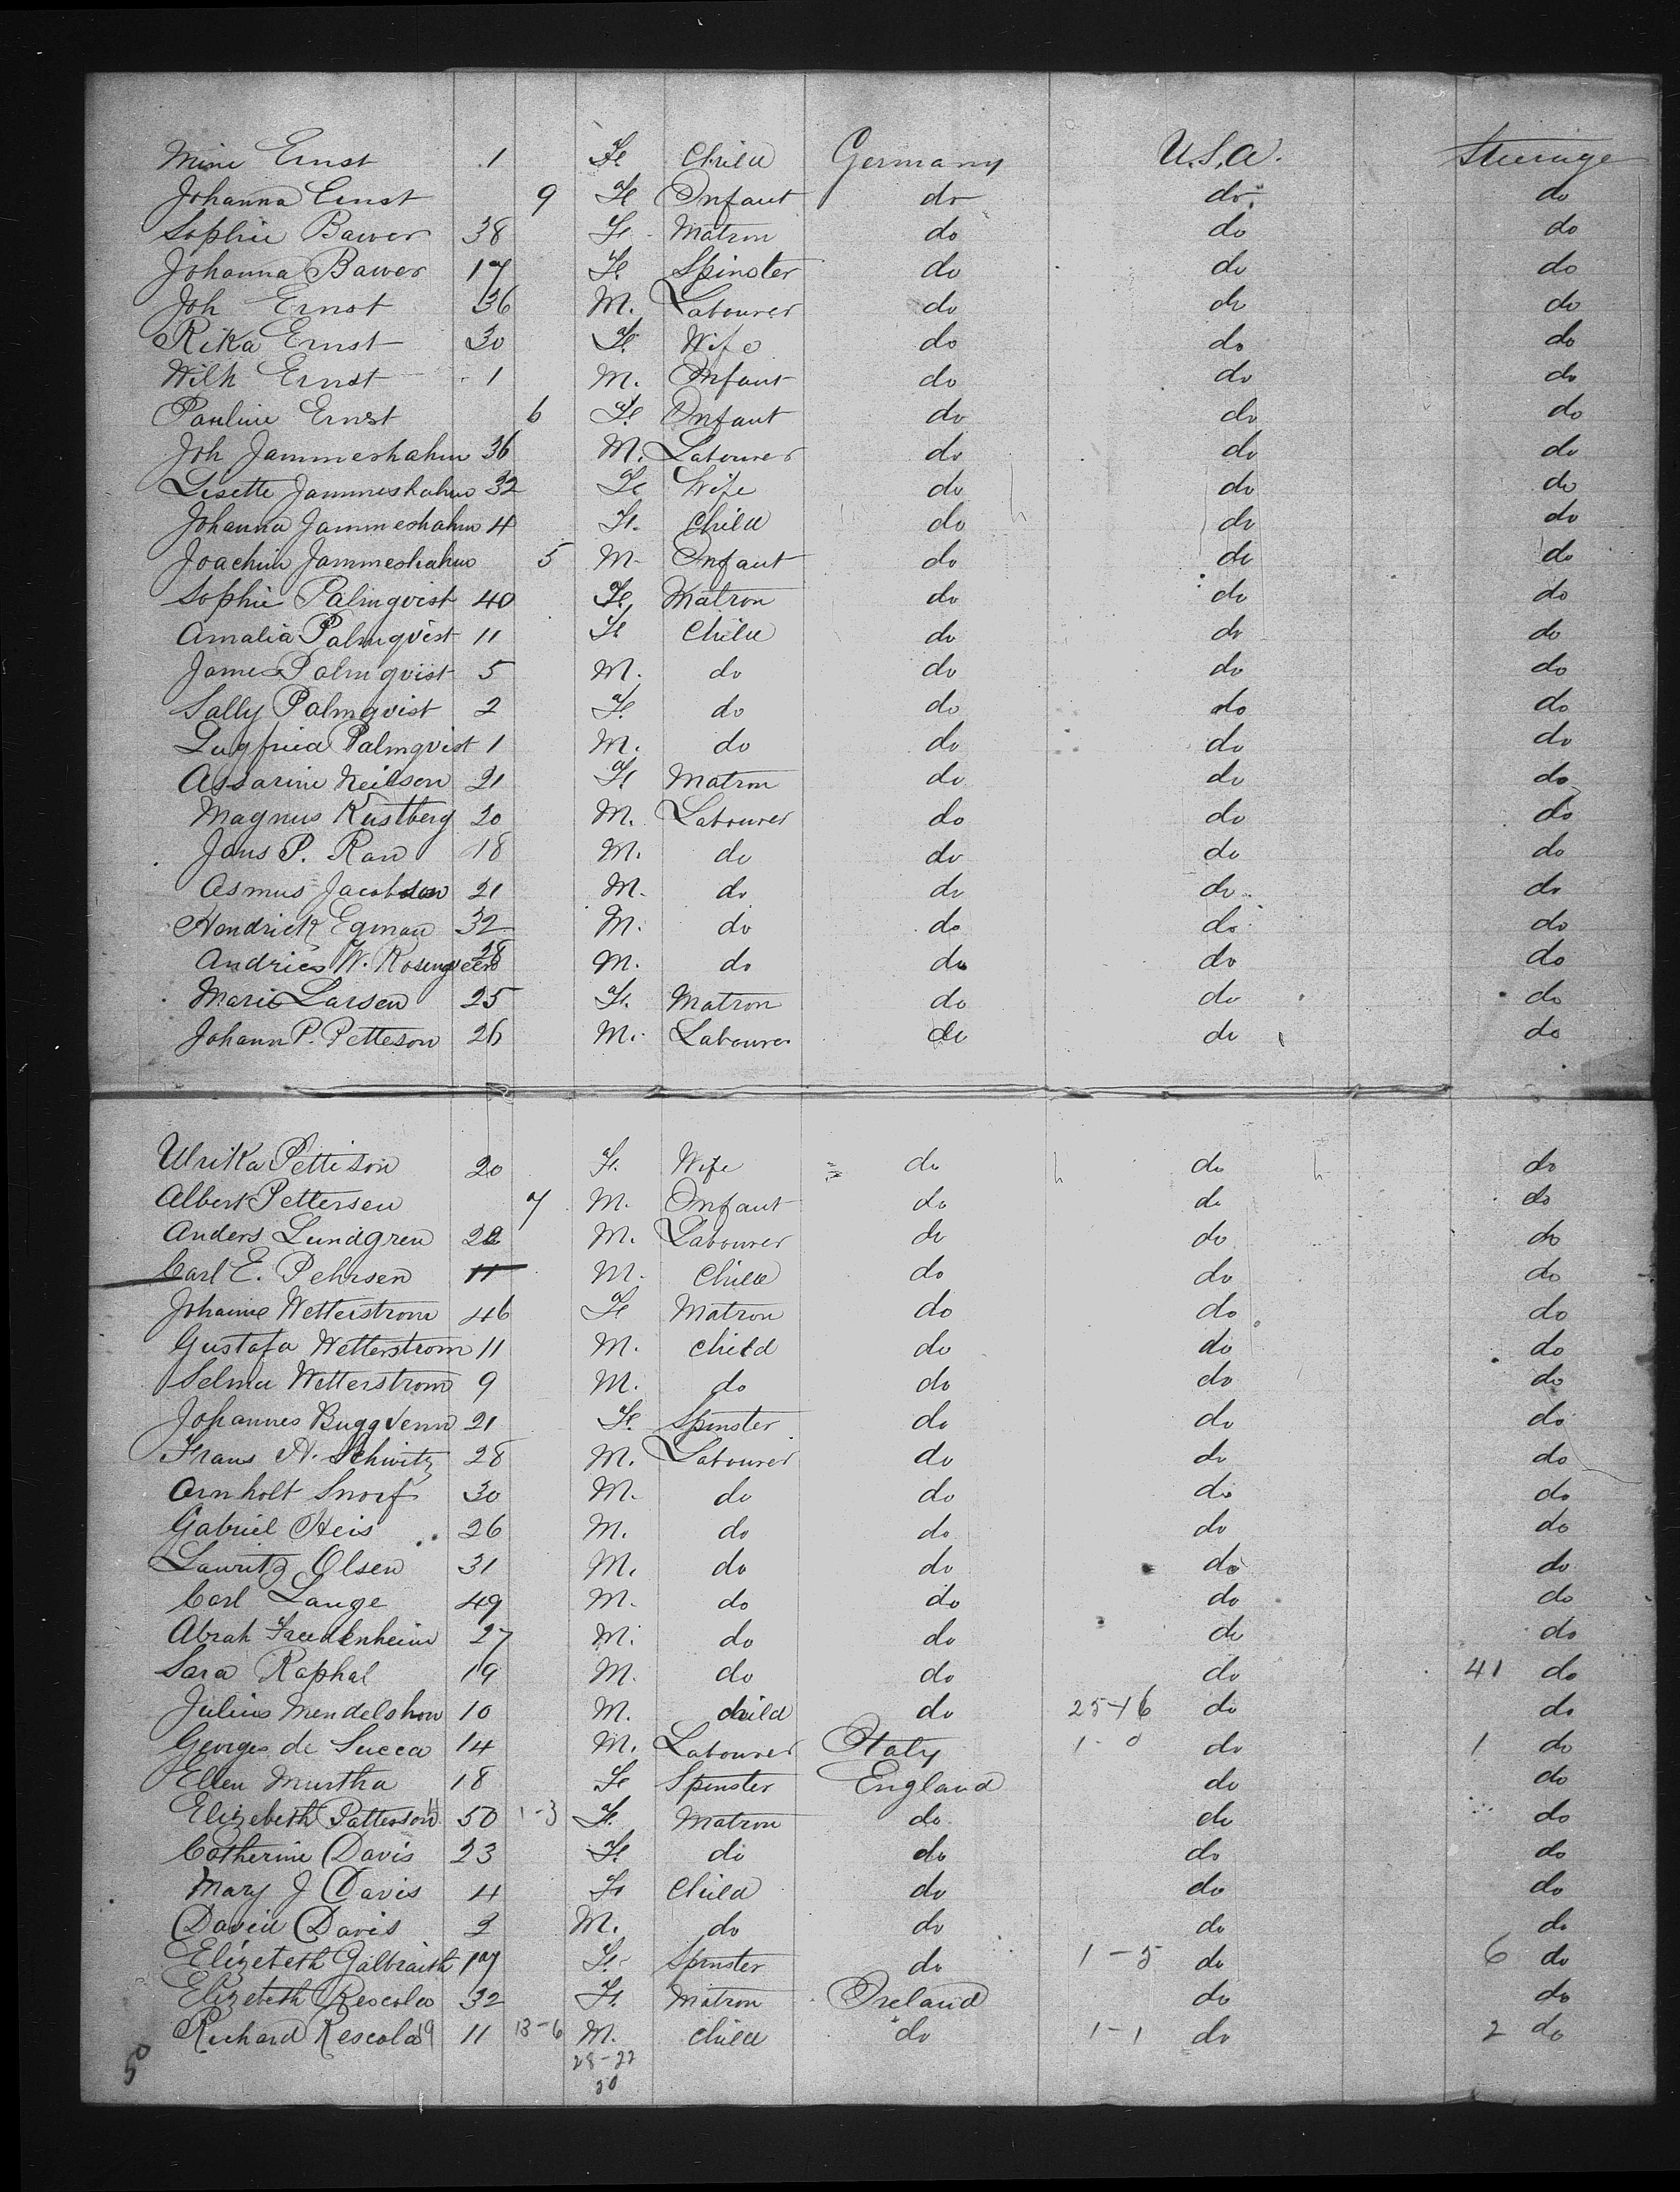 Mine Ernst 1 Fe Child Germany U.S.A. Steerage
Johanna Ernst 9 Fe Infant do do do
Sophie Bawer 38 Fe Matron do do do
Johanna Bawer 17 Fe Spinster do do do
Joh Ernst 36 M. Labourer do do do
Rika Ernst 30 Fe Wife do do do
Wilh Ernst 1 M. Infant do do do
Pauline Ernst 6 Fe Infant do do do
Joh Jammeshahn 36 M. Labourer do do do
Lisette Jammeshahn 32 Fe Wife do do do
Johanna Jammeshahn 4 Fe Child do do do
Joachim Jammeshahn 5 M. Infant do do do
Sophie Palmqvist 40 Fe Matron do do do
Amalia Palmqvist 11 Fe Child do do do
James Palmqvist 5 M. do do do do
Sally Palmqvist 2 Fe do do do do
Palmqvist 1 M. do do do do
Assarine Neilson 21 Fe Matron do do do
Magnus Kustberg 20 M. Labourer do do do
Jans P. Raw 18 M. do do do do
Asmus Jacobsen 21 M. do do do do
Hendrick Egman 32 M. do do do do
Andries W. 28 M. do do do do
Marie Larsen 25 Fe Matron do do do
Johann P. Petteson 26 M. Labourer do do do
Ulrika Pettison 20 Fe Wife do do do
Albert Pettersen 7 M. Infant do do do
Anders Lundgren 22 M. Labourer do do do
Carl E. Pehrsen 11 M. Child do do do
Johanne Wetterstrom 46 Fe Matron do do do
Gustafa Wetterstrom 11 M. Child do do do
Selma Wetterstrom 9 M. do do do do
Johannes 21 Fe Spinster do do do
Frans A. Schwitz 28 M. Labourer do do do
Arnholt Snorf 30 M. do do do do
Gabriel Heis 26 M. do do do do
Lauritz Olsen 31 M. do do do do
Carl Lange 49 M. do do do do
Abrah 27 M. do do do do
Sara Raphal 19 M. do do do 41 do
Julius Mendelshon 10 M. child do 25-16 do do
Georges de Succa 14 M. Labourer Italy 1-0 do 1 do
Ellen Murtha 18 Fe Spinster England do do
Elizebeth Pattersson 11 50 1-3 Fe Matron do do do
Catherine Davis 23 Fe do do do do
Mary J Davis 4 Fe Child do do do
David Davis 2 M. do do do do
Elizebeth Galbraith 17 Fe Spinster do 1-5 do 6 do
Elizebeth Rescola 32 Fe Matron Ireland do do
Richard Rescola 19 11 13-6 M. child do 1-1 do 2 do
50 28-22
50